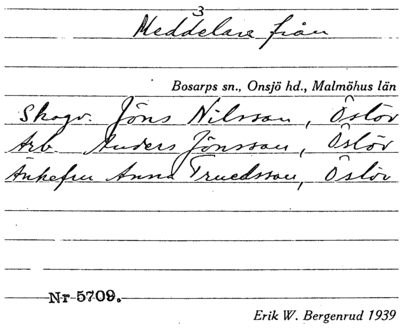 3
Meddelare från
Bosarps sn., Onsjö hd., Malmöhus län
Skogv. Jöns Nilsson, Östöv
Arb. Anders Jönsson, Östöv
Änkefru Anna Truedsson, Östöv
Nr 5709.
Erik W. Bergenrud 1939